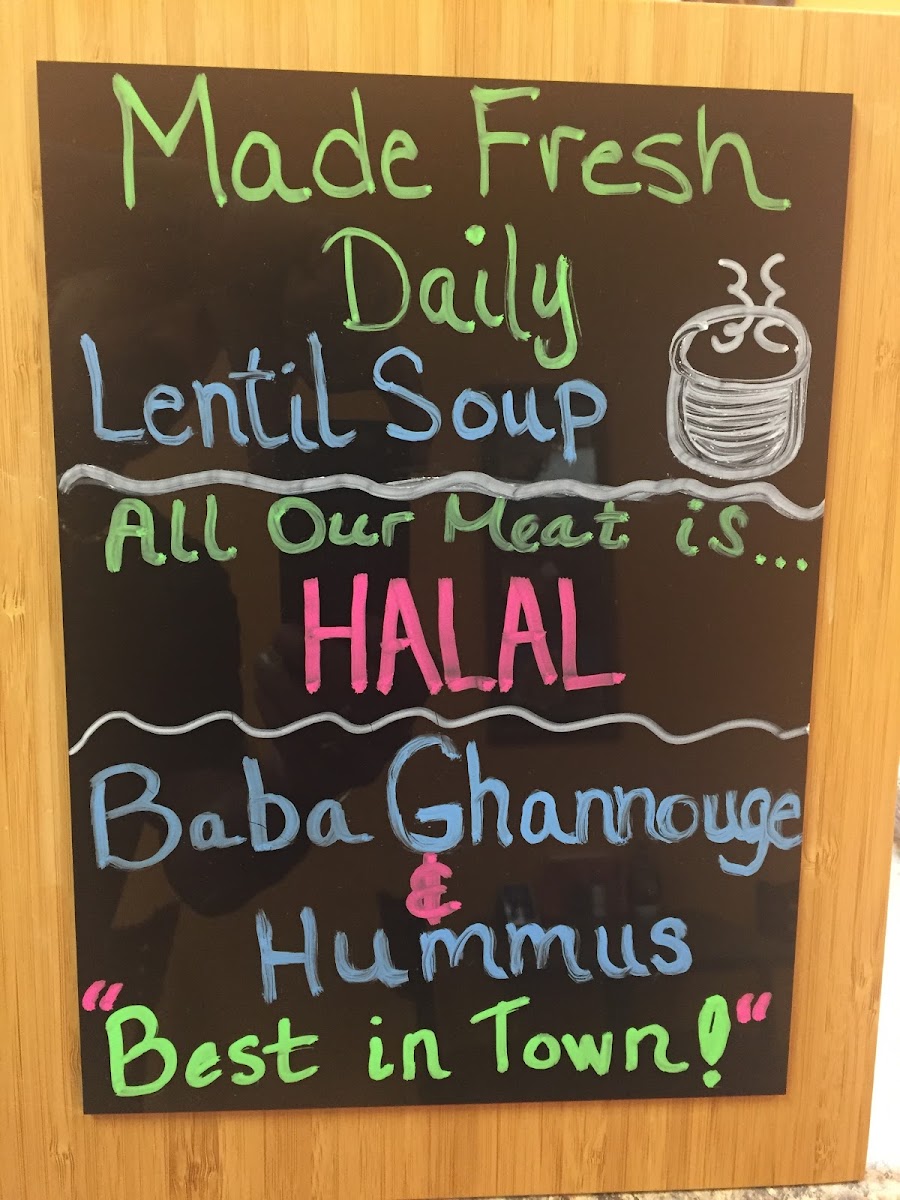 Made Fresh
Daily
Lentil Soup
All Our Meat is...
HALAL
Baba Ghannouge
&
Hummus
"Best in Town!"